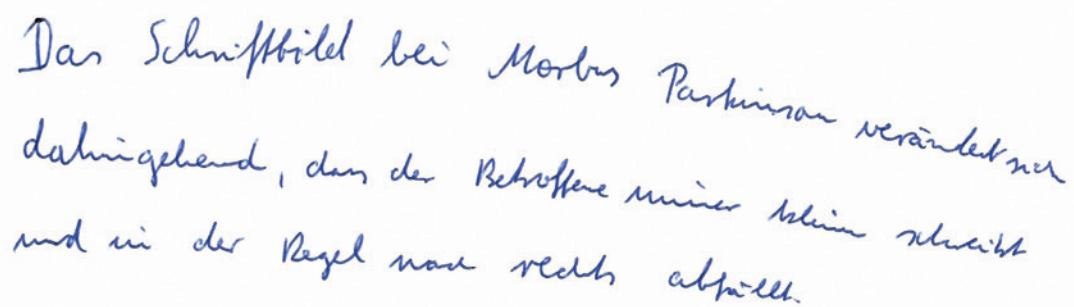 Das Schriftbild bei Morbus Parkinson verändert sich
dahingehend, dass der Betroffene immer kleiner schreibt
und in der Regel nach rechts abfällt.